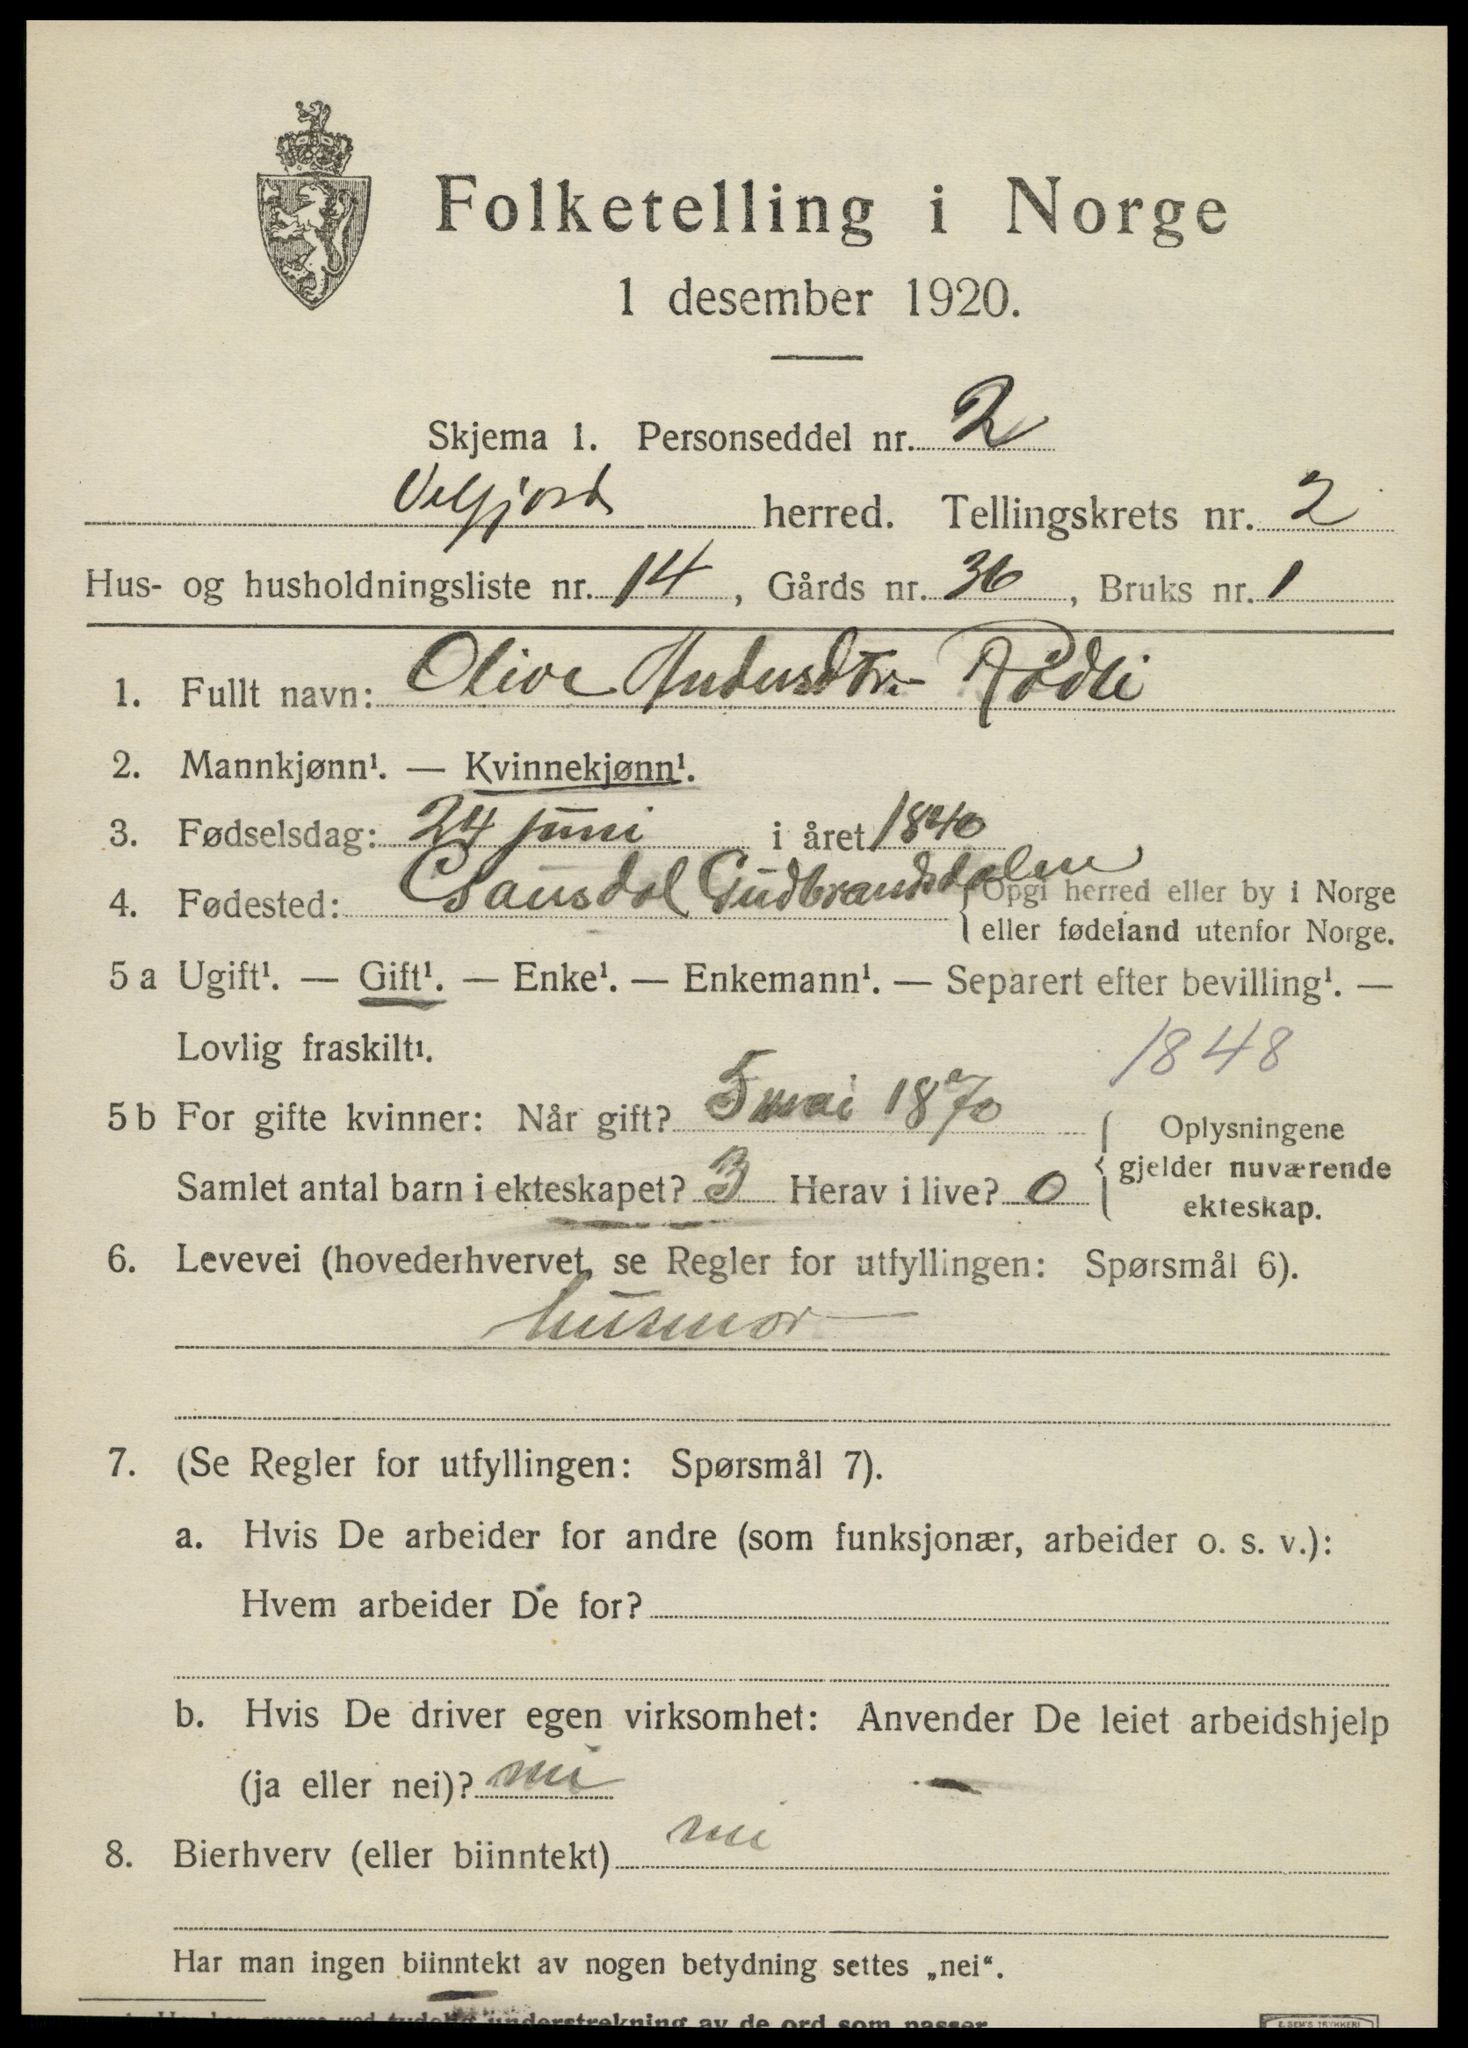 Folketelling i Norge
1 desember 1920.
Skjema 1. Personseddel nr. 2
Velfjord herred. Tellingskrets nr. 2
Hus- og husholdningsliste nr. 14, Gårds nr. 36, Bruks nr. 1
1. Fullt navn: Olive Andersdtr. Rødli
2. Mannkjønn¹. — Kvinnekjønn¹.
3. Fødselsdag: 24 juni i året 1840
4. Fødested: Gausdal Gudbrandsdalen {Opgi herred eller by i Norge
eller fødeland utenfor Norge.
5 a Ugift¹. — Gift¹. — Enke¹. — Enkemann¹. — Separert efter bevilling¹. —
Lovlig fraskilt¹.
1848
5 b For gifte kvinner: Når gift? 5 mai 1870
Samlet antal barn i ekteskapet? 3 Herav i live? 0
{Oplysningene
gjelder nuværende
ekteskap.
6. Levevei (hovederhvervet, se Regler for utfyllingen: Spørsmål 6).
husmor
7. (Se Regler for utfyllingen: Spørsmål 7).
a. Hvis De arbeider for andre (som funksjonær, arbeider o. s. v.):
Hvem arbeider De for?
b. Hvis De driver egen virksomhet: Anvender De leiet arbeidshjelp
(ja eller nei)? nei —
8. Bierhverv (eller biinntekt) nei
Har man ingen biinntekt av nogen betydning settes „nei“.
understrekning av de ord som passer